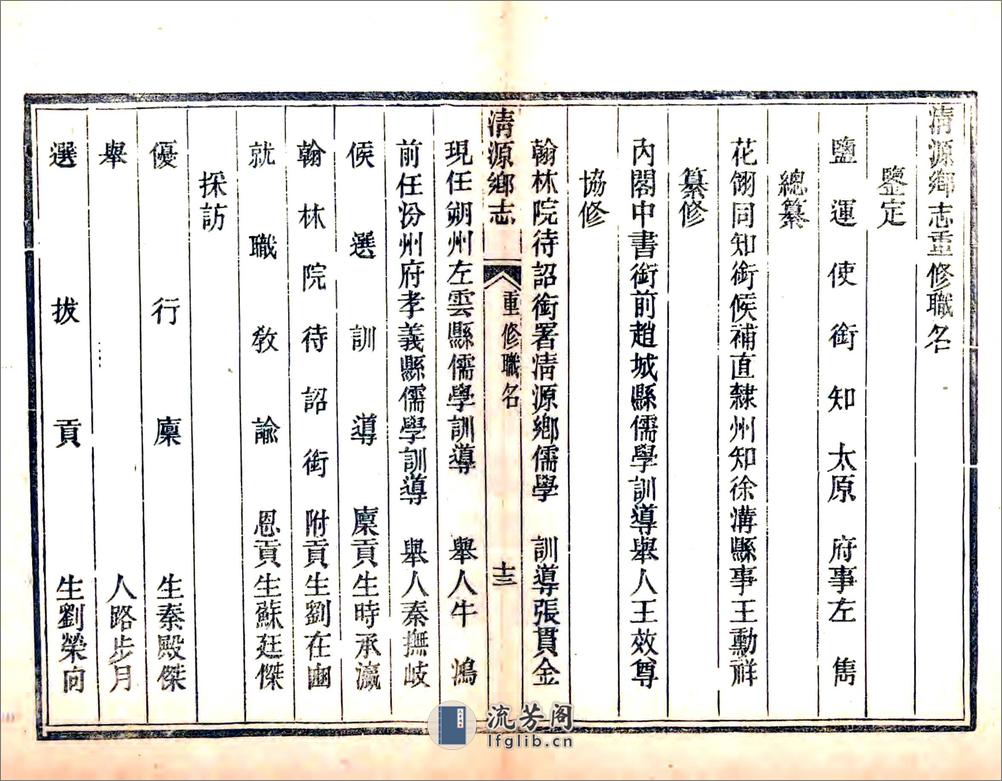 清源鄉志重修職名
鑒定
鹽運使銜知太原府事左雋
總纂
花翎同知銜候補直隸州知徐溝縣事王勳祥
纂修
內閣中書銜前趙城縣儒學訓導舉人王效尊
協修
翰林院待詔銜署清源鄉儒學 訓導張貫金
清源鄉志 重修職名 十三
現任朔州左雲縣儒學訓導 舉人牛鴻
前任汾州府孝義縣儒學訓導 舉人秦撫岐
候選訓導 廩貢生時承瀛
翰林院待詔銜 附貢生劉在豳
就職教諭 恩貢生蘇廷傑
採訪
優行廩 生秦殿傑
舉 人路步月
選拔貢 生劉榮向
流芳阁
lfglib.cn